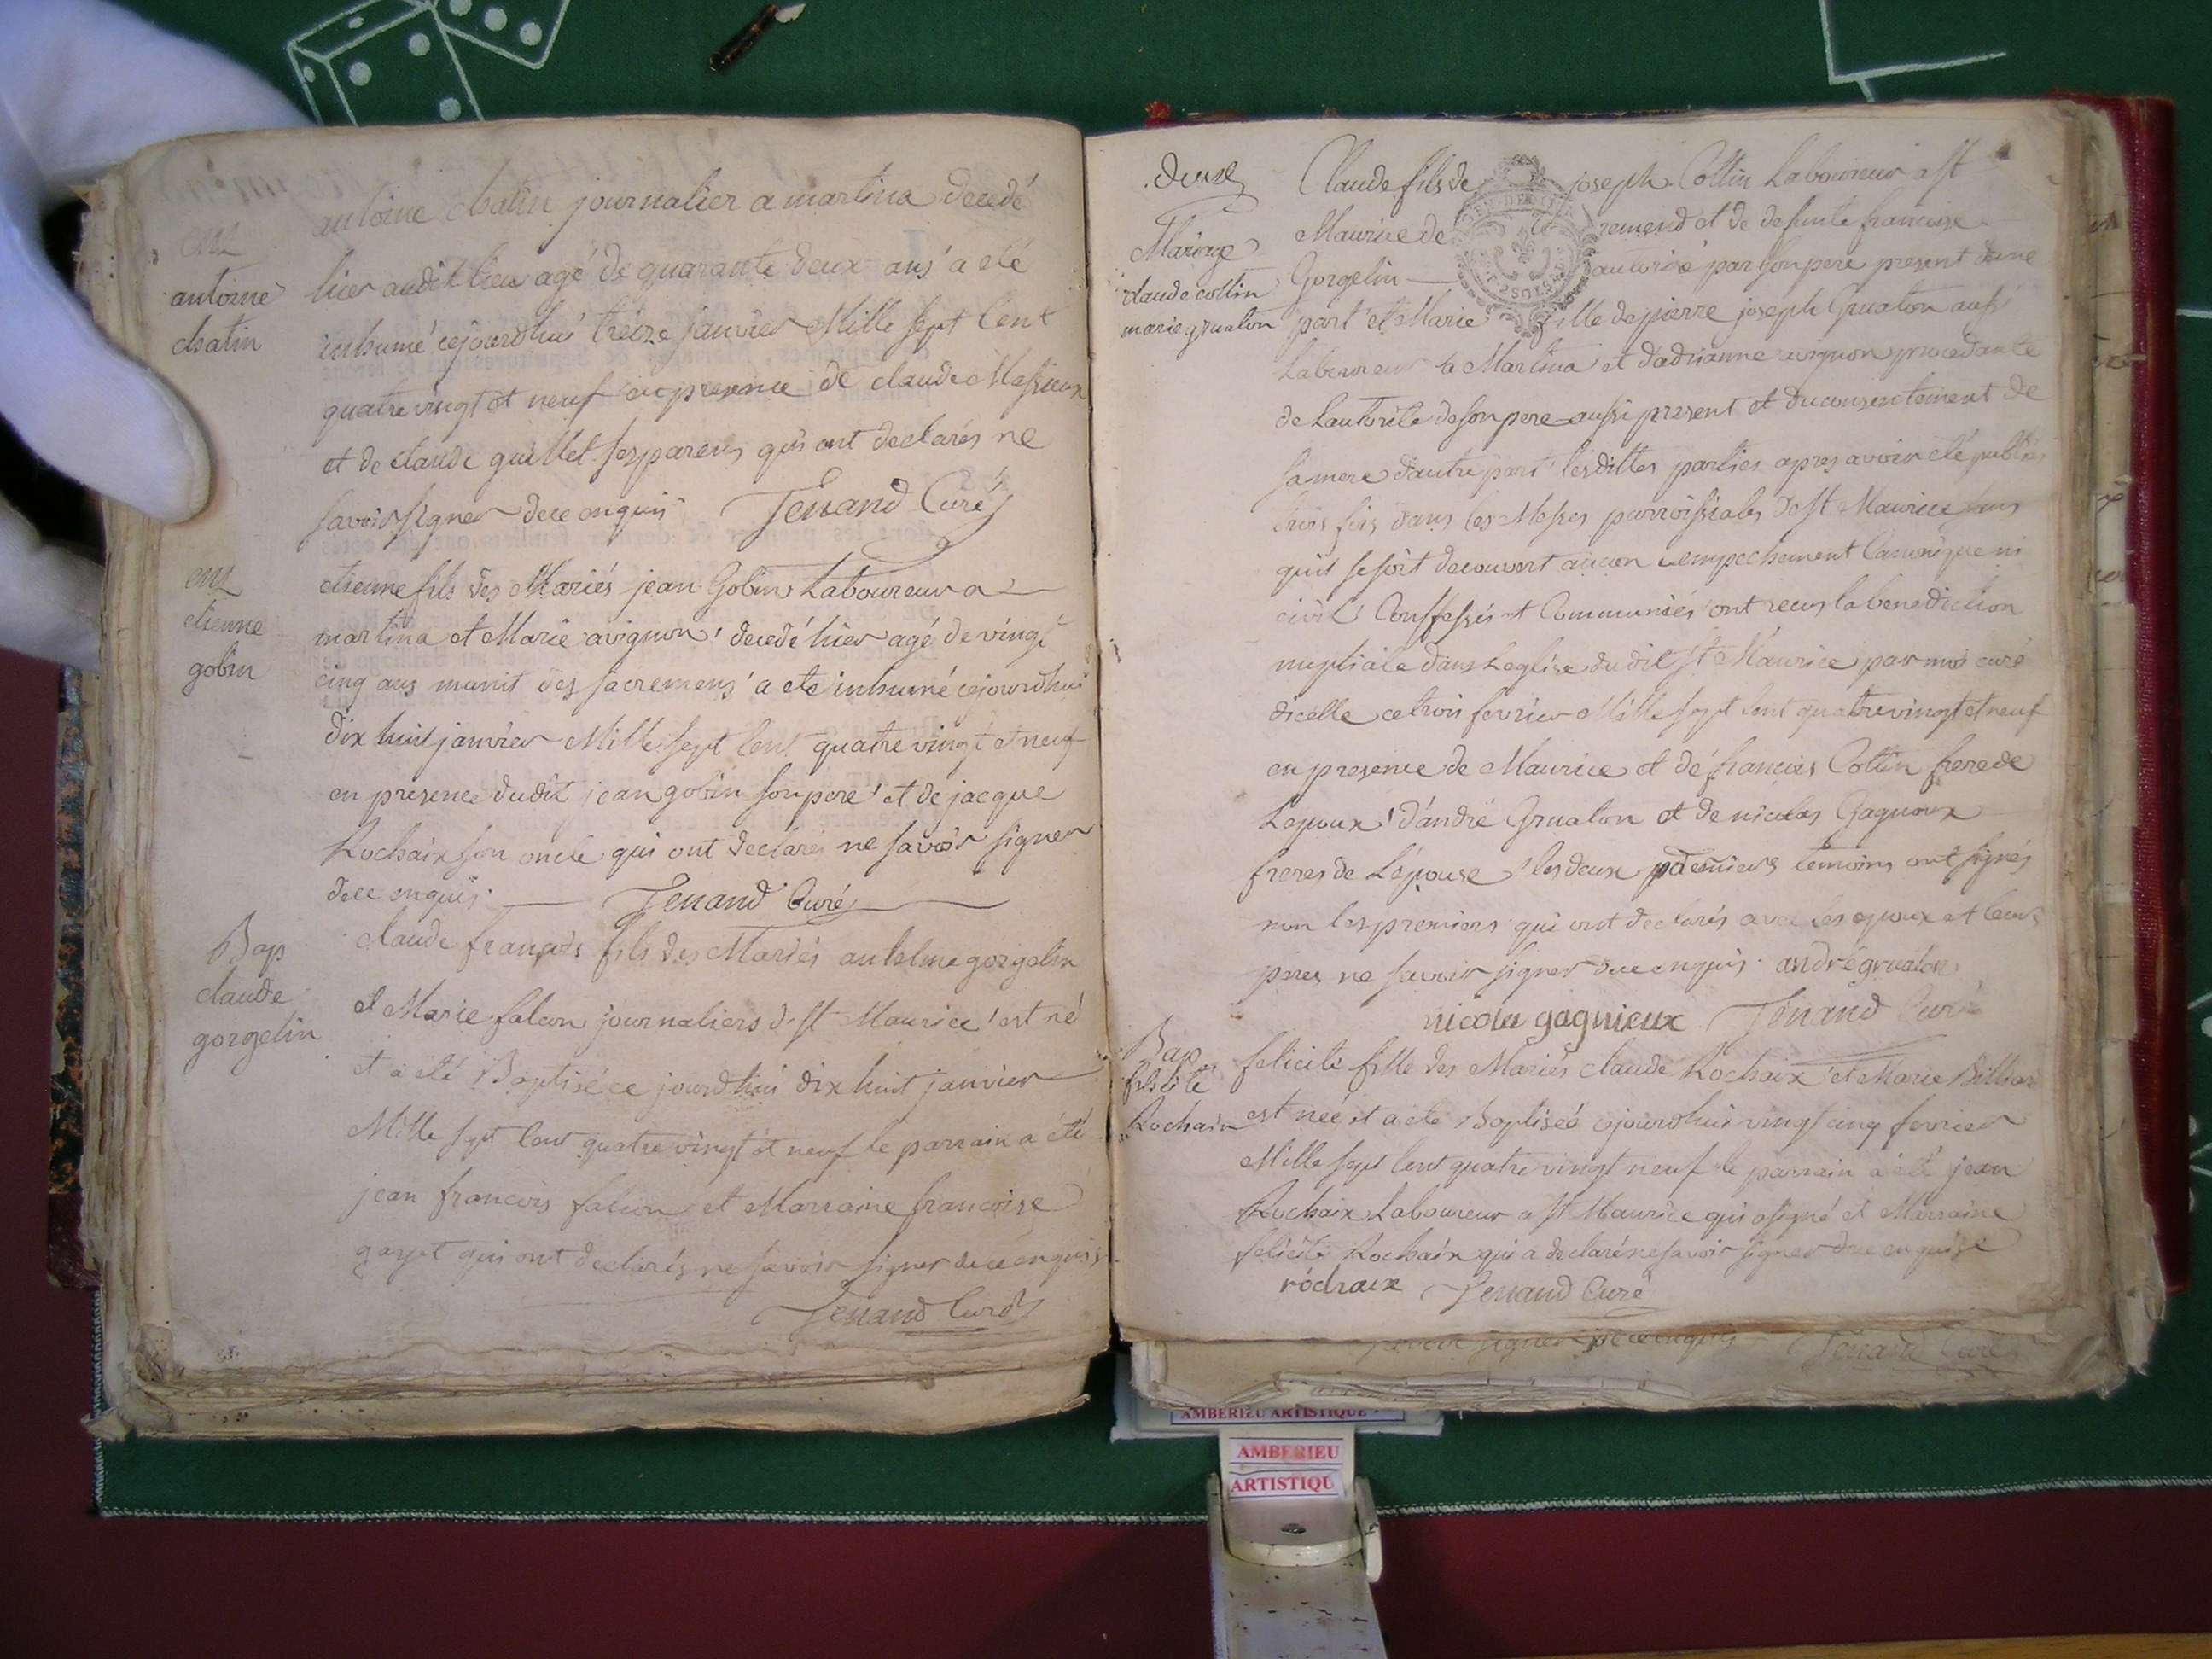 ent
antoine
chatin
antoine chatin journalier a martina decedé
hier audit lieu agé de quarante deux ans a eté
inhumé cejourdhui treize janvier Mille sept Cent
quatre vingt et neuf en presence de claude Massieux
et de claude guillet ses parens qui ont declarés ne
savoir signer de ce enquis Tenand Curé
ent
etienne
gobin
etienne fils des Mariés jean Gobin Laboureur a
martina et Marie avignon decedé hier agé de vingt
cinq ans munit des sacremens a eté inhumé cejourdhui
dix huit janvier Mille sept Cent quatre vingt et neuf
en presence dudit jean gobin son pere et de jacque
Rochaix son oncle qui ont declarés ne savoir signer
de ce enquis Tenand Curé
Bap
claude
gorgelin
claude françois fils des Mariés anthelme gorgelin
et Marie falcon journaliers d. st Maurice est né
et a eté Baptisé ce jourdhui dix huit janvier
Mille sept Cent quatre vingt et neuf le parrain a été
jean francois falcon et Marraine francoise
qui ont declarés ne savoir signer de ce enquis
Tenand Curé
deux
Mariage
claude cottin
marie grualon
Claude fils de joseph Cottin Laboureur a st
Maurice de remend et de defunte francoise
Gorgelin autorisé par son pere present dune
part et Marie fille de pierre joseph Grualon aussi
Laboureur a Martina et dadrianne avignon procedante
de Lautorité de son pere aussi present et du consentement de
sa mere dautre part lesdittes parties apres avoir eté publiés
trois fois dans les Messes parroissiales de st Maurice sans
quil se soit decouvert aucun empechement Canonique ni
civil Conffessés et Communiés ont recus la benediction
nuptiale dans Leglise dudit st Maurice par moi curé
dicelle ce trois fevrier Mille sept Cent quatre vingt et neuf
en presence de Maurice et de francois Cottin frere de
Lepoux d'andré Grualon et de nicolas Gagnoux
freres de Lépouse les deux derniers temoins ont signés
non les premiers qui ont declarés avec les epoux et leurs
peres ne savoir signer de ce enquis andré grualon
nicolas gagnieux Tenand Curé
Bap
felicité
Rochaix
felicité fille des Mariés claude Rochaix et Marie Billion
est neé et a eté Baptiseé cejourdhui vingt cinq fevrier
Mille sept Cent quatre vingt neuf le parrain a été jean
Rochaix Laboureur a st Maurice qui a signé et Marraine
felicité Rochaix qui a declaré ne savoir signer de ce enquise
rochaix Tenand Curé
savoir signer de ce enquis Tenand Curé
AMBERIEU ARTISTIQUE
AMBERIEU
ARTISTIQU